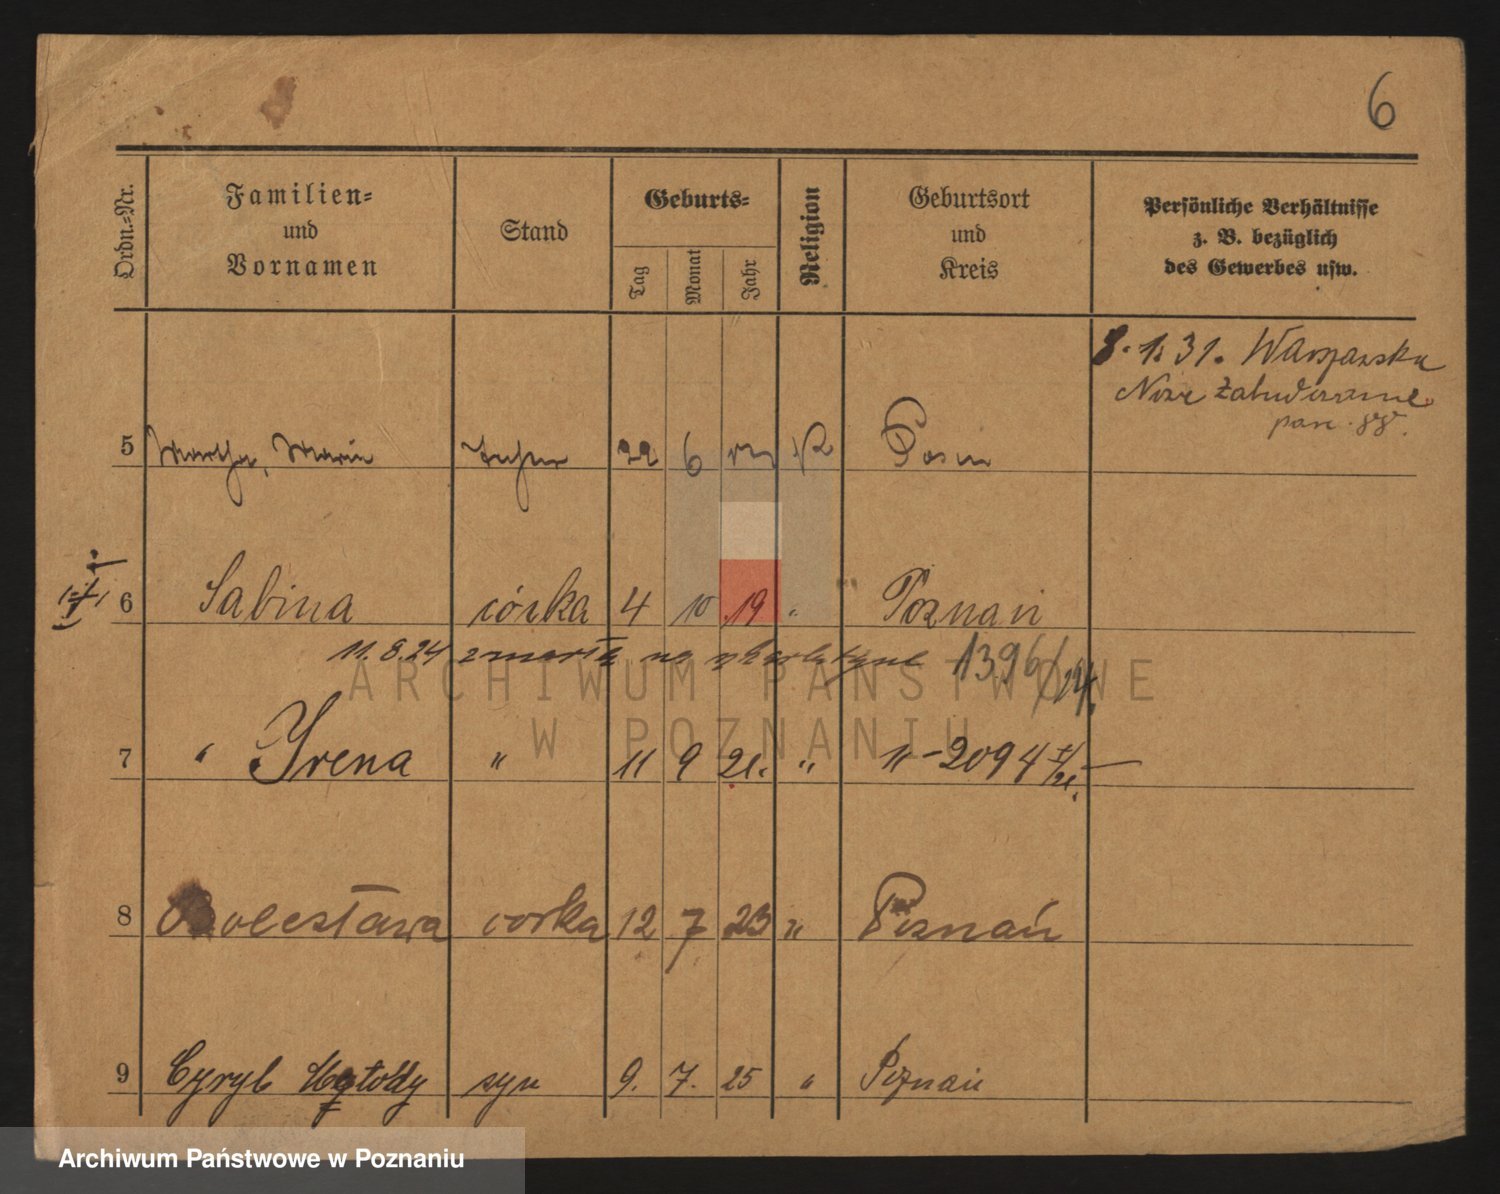 6
Ordn.-Nr.
Familien-
und
Vornamen
Stand
Geburts-
Tag
Monat
Jahr
Religion
Geburtsort
und
Kreis
Persönliche Verhältnisse
z. B. bezüglich
des Gewerbes usw.
8. 1. 31. Warszawska
Nowe Zabudowanie
5 Martha, Maria 22 6 Posen
6 Sabina córka 4 10 19 " Poznań
11.8.24 zmarła na szkarlatynę 1396/24.
7 " Yrena " 11 9 21. " " - 2094
8 Bolesława corka 12 7 23 " Poznań
9 Cyryl Metody syn 9. 7. 25 " Poznań
ARCHIWUM PAŃSTWOWE
W POZNANIU
Archiwum Państwowe w Poznaniu